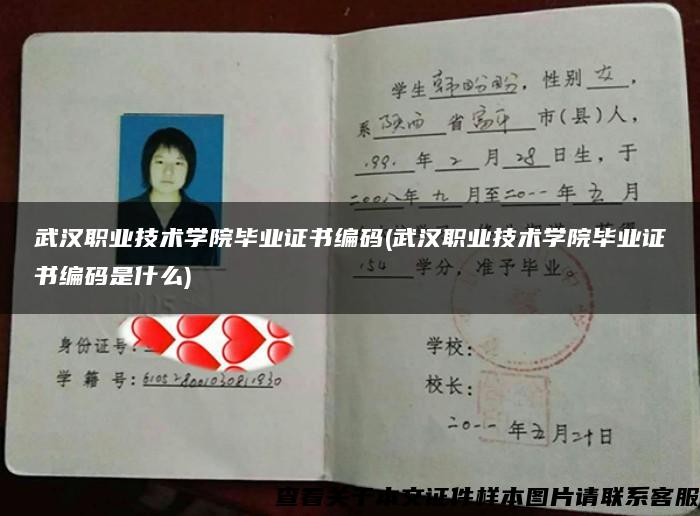 学生韩盼盼，性别女，
系陕西省富平市(县)人，
1991年2月28日生，于
二00八年九月至二0一一年五月
武汉职业技术学院毕业证书编码(武汉职业技术学院毕业证
书编码是什么)
154学分，准予毕业。
身份证号:
学籍号:
学校:
校长:
二0一一年五月二十日
查看关于本文证件样本图片请联系客服